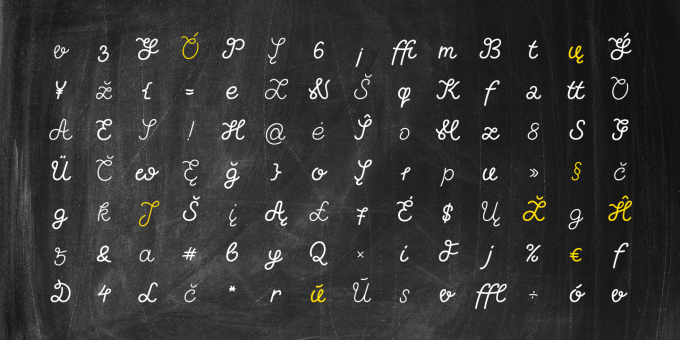 v 3 Y Ó P Į 6 j ffi m B t ų Ý
¥ ž { = e Z N Š φ K f a tt O
A E S ! H @ ė Ŝ o M z 8 S F
Ü Č w Ę ğ } o Į r p u » § č
g k J Š į Ą £ f É $ Ų Ž g Ĥ
& a # b y Q × i F j % € f
D 4 L č * r ú Ū s v ffl ÷ ó v